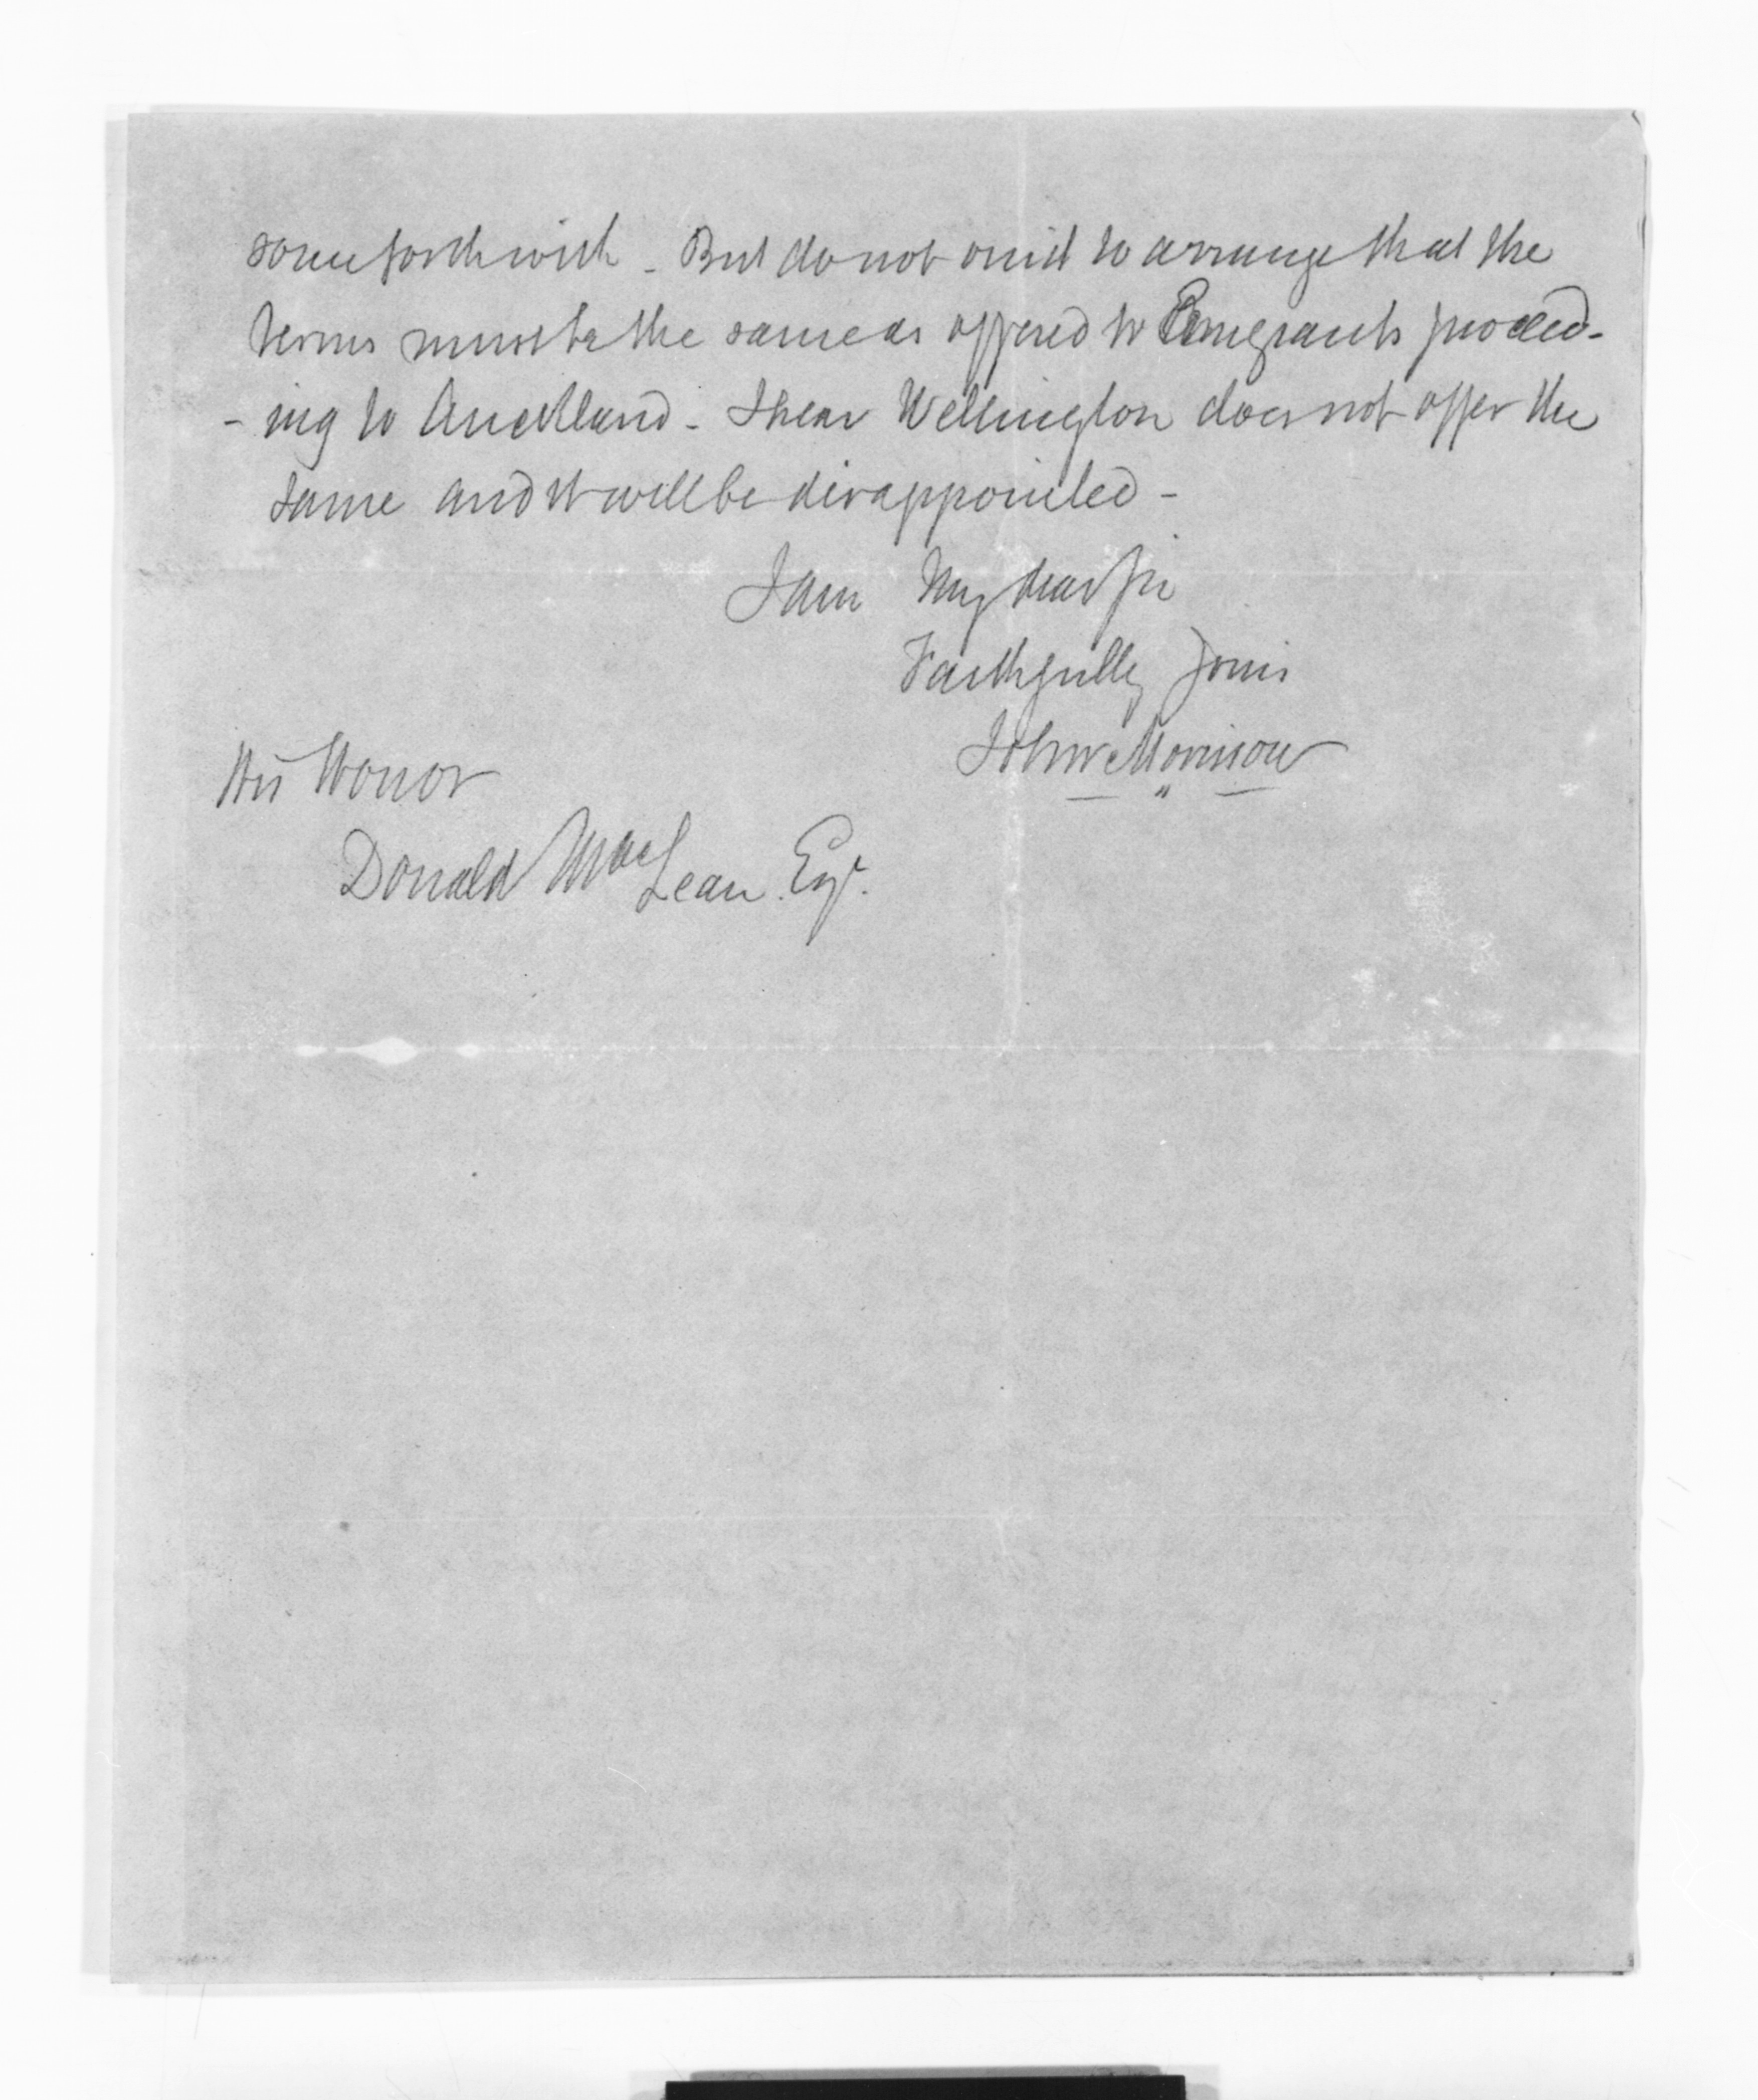 some forthwith - But do not omit to arrange that the
terms must be the same as offered to Emigrants proceed-
- ing to Auckland - I hear Wellington does not offer the
same and it will be disappointed -
I am My dear Sir
Faithfully yours
John Morrison
His Honor
Donald MacLean. Esqr.